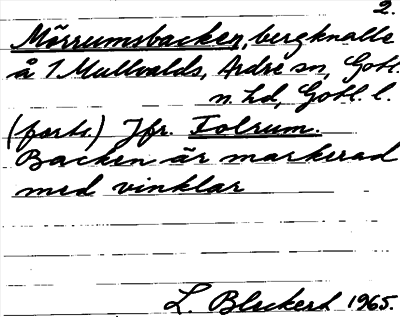 2.
Mörrumsbacken, bergknalle
å 1 Mullvalds, Ardre sn, Gotl.
n. hd, Gotl. l.
(forts.) Jfr. Tolrum.
Backen är markerad
med vinklar
L. Blockert 1965.